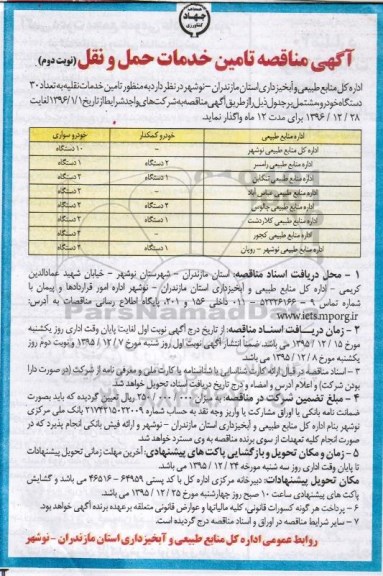 جهاد
کشاورزی
آگهی مناقصه تامین خدمات حمل و نقل (نوبت دوم)
اداره کل منابع طبیعی و آبخیزداری استان مازندران – نوشهر در نظر دارد به منظور تامین خدمات نقلیه به تعداد ۳۰
دستگاه خودرو مشتمل بر جدول ذیل را از طریق آگهی مناقصه به شرکت های واجد شرایط از تاریخ ۱۳۹۶/۱/۱ لغایت
۱۳۹۶ / ۱۲ / ۲۸ برای مدت ۱۲ ماه واگذار نماید.
اداره منابع طبیعی خودرو کمکدار خودرو سواری
اداره کل منابع طبیعی نوشهر – ۱۰ دستگاه
اداره منابع طبیعی رامسر ۲ دستگاه ۱ دستگاه
اداره منابع طبیعی تنکابن ۱ دستگاه ۲ دستگاه
اداره منابع طبیعی عباس آباد – ۲ دستگاه
اداره منابع طبیعی چالوس ۲ دستگاه
اداره منابع طبیعی کلاردشت ۱ دستگاه
اداره منابع طبیعی کجور – ۲ دستگاه
اداره منابع طبیعی نوشهر – رویان ۱ دستگاه ۲ دستگاه
۱ – محل دریافت اسناد مناقصه: استان مازندران – شهرستان نوشهر – خیابان شهید عمادالدین
کریمی – اداره کل منابع طبیعی و آبخیزداری استان مازندران – نوشهر اداره امور قراردادها و پیمان با
شماره تماس ۹ – ۵۲۳۲۶۱۶۶ – ۰۱۱ داخلی ۱۵۶ و ۲۰۱، پایگاه اطلاع رسانی مناقصات به آدرس:
www.iets.mporg.ir
۲ – زمان دریافت اسناد مناقصه: از تاریخ درج آگهی نوبت اول لغایت پایان وقت اداری روز یکشنبه
مورخ ۱۵ / ۱۲ / ۱۳۹۵ می باشد. ضمنا انتشار آگهی نوبت اول روز شنبه مورخ ۷ / ۱۲ / ۱۳۹۵ و نوبت دوم روز
یکشنبه مورخ ۸ / ۱۲ / ۱۳۹۵ می باشد.
۳ – اسناد مناقصه در قبال ارائه کارت شناسایی یا شناسنامه یا کارت ملی و معرفی نامه از شرکت (در صورت دارا
بودن شرکت) و اعلام آدرس و امضاء و درج تاریخ دریافت اسناد تحویل خواهد شد.
۴ – مبلغ تضمین شرکت در مناقصه: به میزان ۲۵۰,۰۰۰,۰۰۰ ریال تعیین گردیده که باید بصورت
ضمانت نامه بانکی یا اوراق مشارکت یا واریز وجه نقد به حساب شماره ۲۱۷۴۲۱۵۰۲۲۰۰۹ بانک ملی مرکزی
نوشهر بنام اداره کل منابع طبیعی و آبخیزداری استان مازندران – نوشهر و ارائه فیش بانکی انجام پذیرد که در
صورت انجام کلیه تعهدات از سوی برنده مناقصه به وی مسترد خواهد شد.
۵ – زمان و مکان تحویل و بازگشایی پاکت های پیشنهادی: آخرین مهلت زمانی تحویل پیشنهادات
تا پایان وقت اداری روز سه شنبه مورخه ۲۴ / ۱۲ / ۱۳۹۵ می باشد.
مکان تحویل پیشنهادات: دبیرخانه مرکزی اداره کل با کد پستی ۶۴۹۵۹ – ۴۶۵۱۶ می باشد و گشایش
پاکت های پیشنهادی ساعت ۱۰ صبح روز چهارشنبه مورخ ۲۵ / ۱۲ / ۱۳۹۵ می باشد.
۶ – پرداخت هر گونه کسورات قانونی، کلیه مالیاتها و عوارض قانونی متعلقه برعهده برنده آگهی خواهد بود.
۷ – سایر شرایط مناقصه در اوراق و اسناد مناقصه درج گردیده است.
روابط عمومی اداره کل منابع طبیعی و آبخیزداری استان مازندران – نوشهر